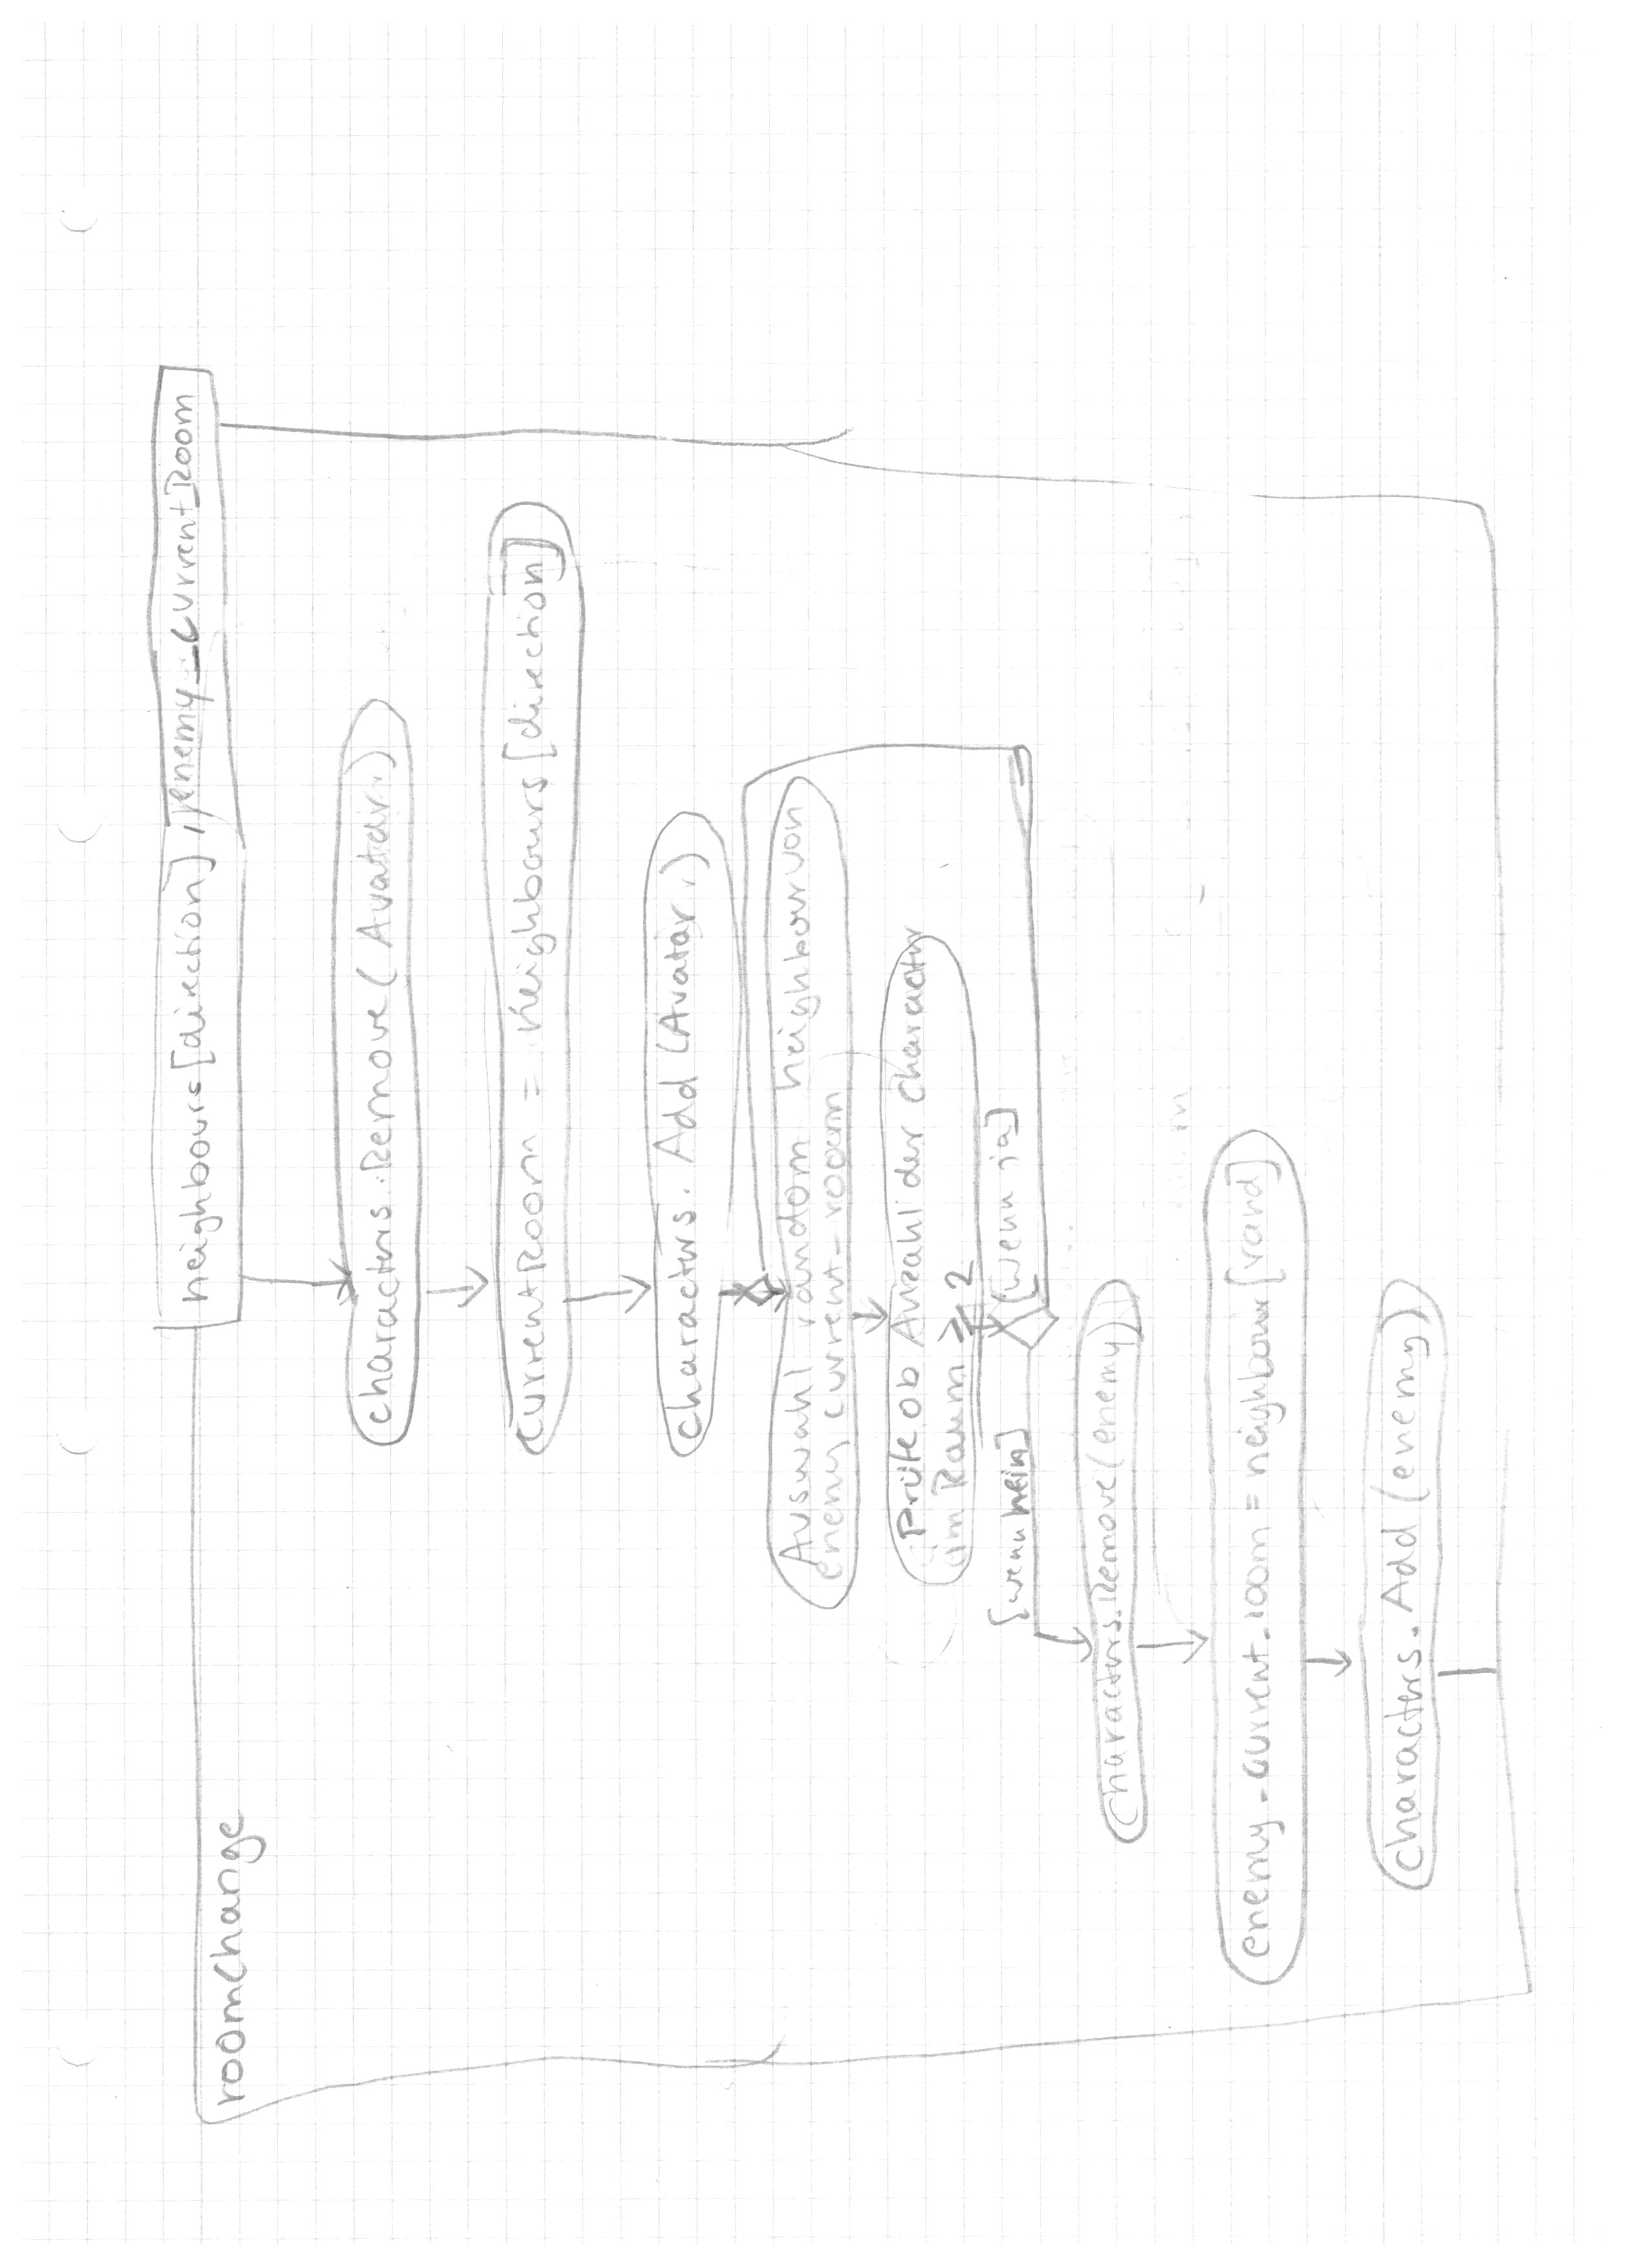 neighbours[direction], enemy_currentRoom
roomChange
characters.Remove(Avatar)
currentRoom = neighbours[direction]
characters.Add(Avatar)
Auswahl random neighbour von
enemy current_room
Prüfe ob Anzahl der Character
im Raum ≥ 2
[wenn nein] [wenn ja]
characters.Remove(enemy)
enemy_current_room = neighbour[rand]
characters.Add(enemy)